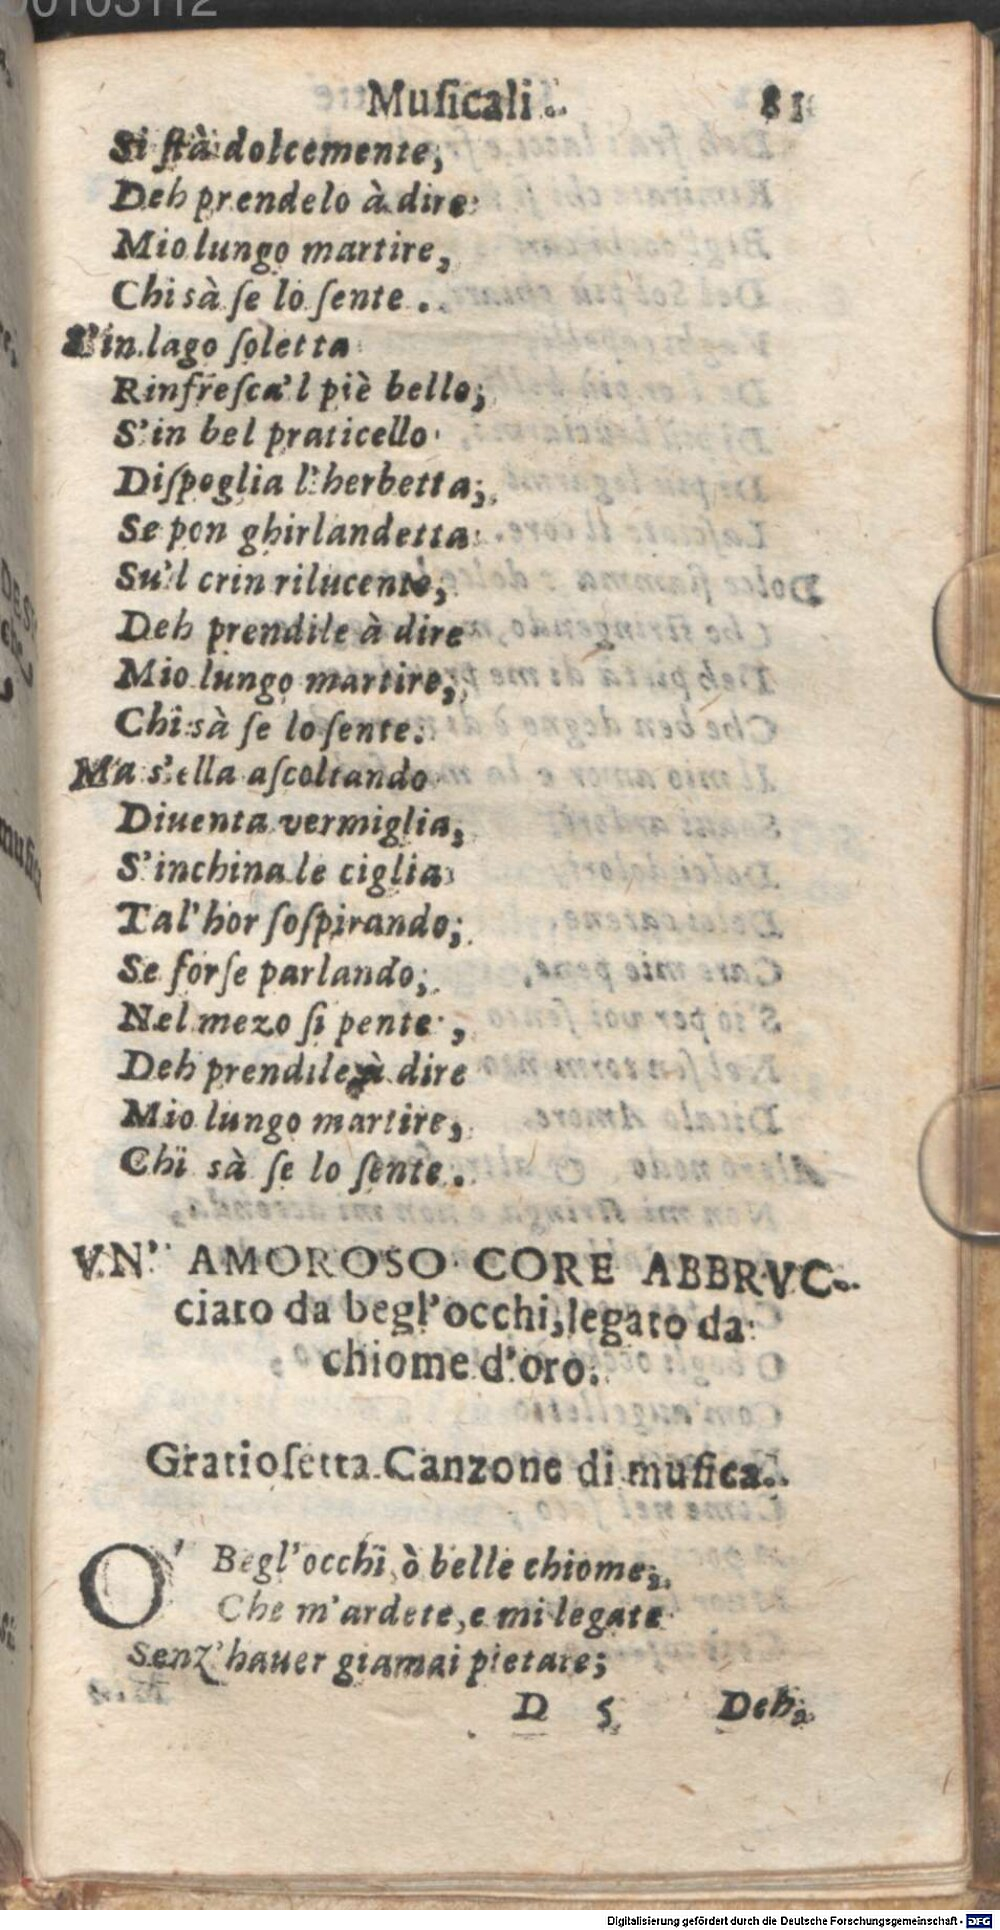 00103112
Muſicali. 81
Si ſtà dolcemente,
Deh prendelo à dire
Mio lungo martire,
Chi sà ſe lo ſente.
S'in lago ſoletta
Rinfreſca'l piè bello;
S'in bel praticello
Diſpoglia l'herbetta;
Se pon ghirlandetta
Su'l crin rilucente;
Deh prendile à dire
Mio lungo martire,
Chi sà ſe lo ſente.
Ma s'ella aſcoltando
Diuenta vermiglia,
S'inchina le ciglia
Tal'hor ſoſpirando;
Se forſe parlando,
Nel mezo ſi pente,
Deh prendile à dire
Mio lungo martire,
Chi sà ſe lo ſente.
VN' AMOROSO CORE ABBRVC-
ciato da begl'occhi, legato da
chiome d'oro.
Gratioſetta Canzone di muſica.
O' Begl'occhi, ò belle chiome,
Che m'ardete, e mi legate
Senz'hauer giamai pietate;
D 5 Deh,
Digitalisierung gefördert durch die Deutsche Forschungsgemeinschaft - DFG